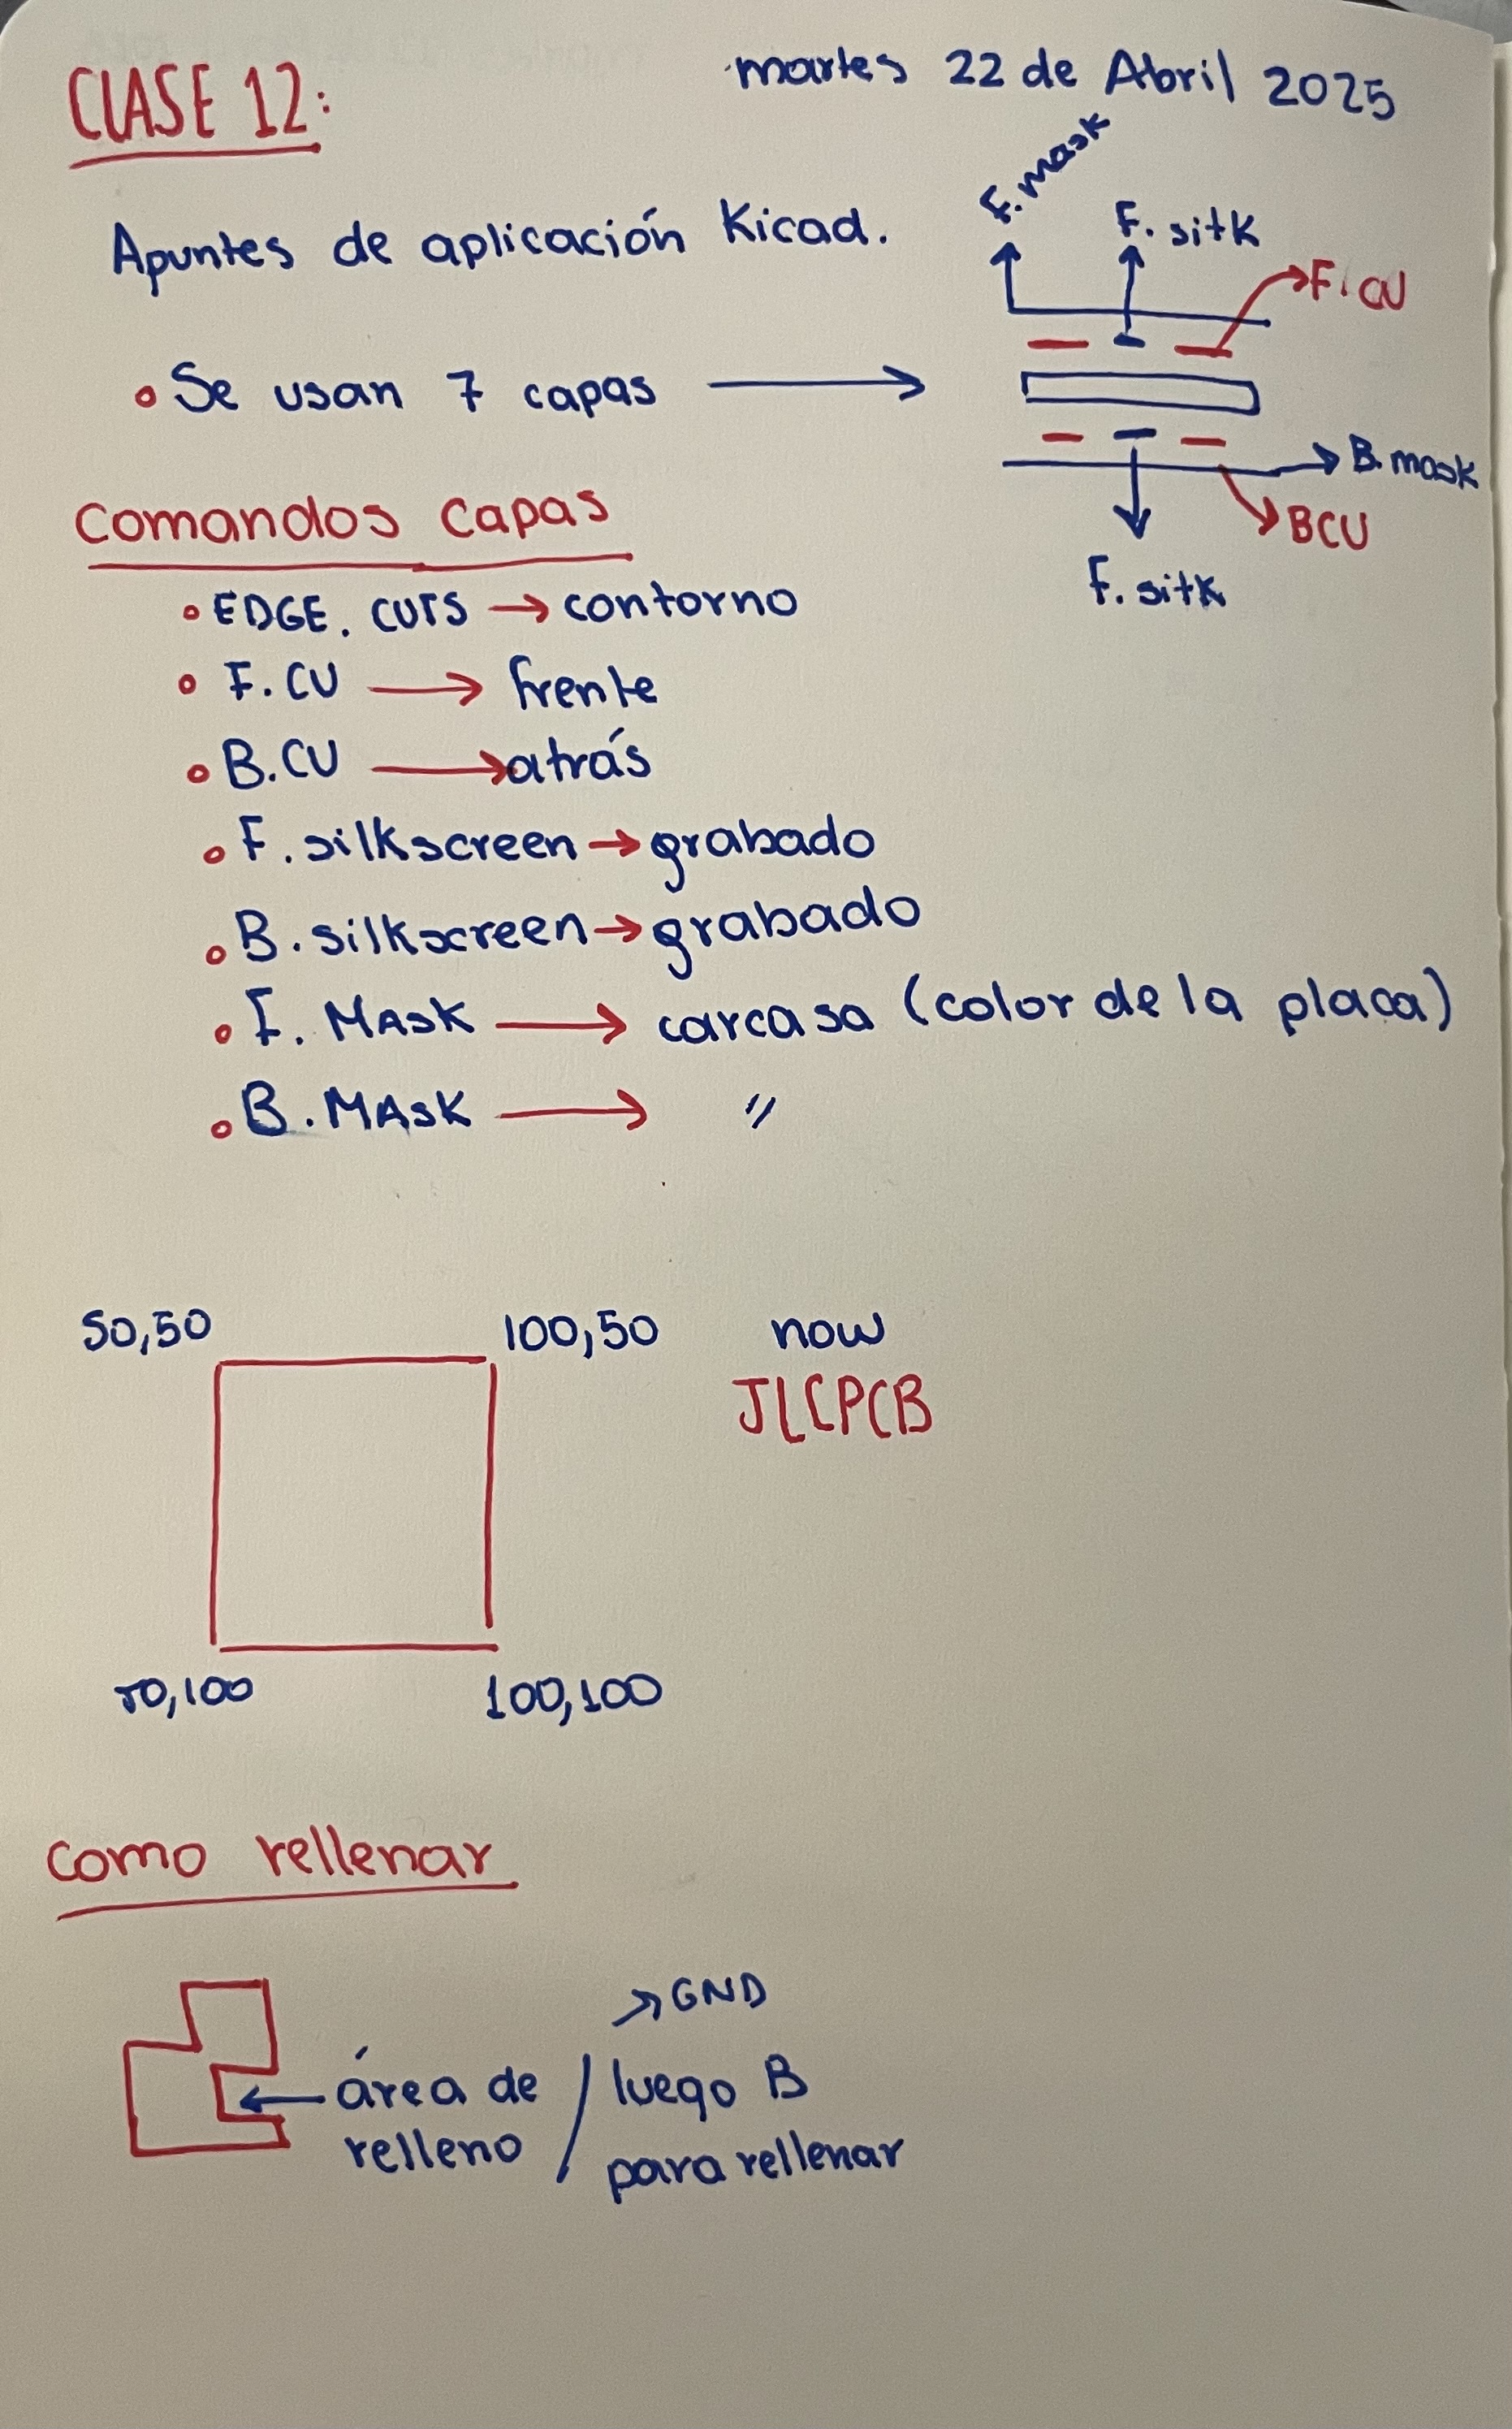 CLASE 12:
martes 22 de Abril 2025
Apuntes de aplicación Kicad.
F. mask
F. sitk
F. CU
• Se usan 7 capas →
B. mask
BCU
F. sitk
comandos capas
• EDGE. CUTS → contorno
• F. CU → frente
• B. CU → atrás
• F. silkscreen → grabado
• B. silkscreen → grabado
• F. MASK → carcasa (color de la placa)
• B. MASK → "
50,50
100,50
now
JLCPCB
50,100
100,100
como rellenar
→ GND
← área de / luego B
relleno / para rellenar